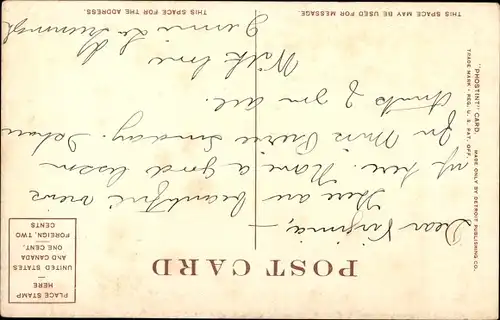 POST CARD
THIS SPACE MAY BE USED FOR MESSAGE.
THIS SPACE FOR THE ADDRESS.
"PHOSTINT" CARD.
TRADE MARK - REG. U. S. PAT. OFF.
MADE ONLY BY DETROIT PUBLISHING CO.
PLACE STAMP
HERE
UNITED STATES
AND CANADA
ONE CENT.
FOREIGN, TWO
CENTS
Dear Virginia,—
There are beautiful views
up here. Have a good lesson
for Miss Sunday.
of you all.
With love